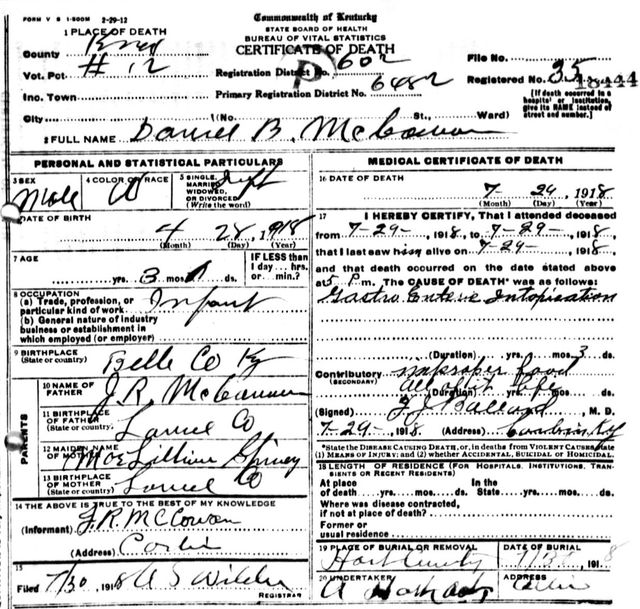 FORM V S 1-500M 2-29-12
Commonwealth of Kentucky
STATE BOARD OF HEALTH
BUREAU OF VITAL STATISTICS
CERTIFICATE OF DEATH
1 PLACE OF DEATH
County
Vot. Pct # 12
Inc. Town
City (No. St., Ward)
Registration District No. 602
Primary Registration District No. 6482
File No.
Registered No. 35
18444
[If death occurred in a hospital or institution, give its NAME instead of street and number.]
2 FULL NAME Daniel B. McCowan
PERSONAL AND STATISTICAL PARTICULARS
3 SEX Male
4 COLOR OR RACE
5 SINGLE, MARRIED, WIDOWED, OR DIVORCED (Write the word)
DATE OF BIRTH
4 28, 1918
(Month) (Day) (Year)
7 AGE
yrs. 3 mos. ds.
IF LESS than 1 day... hrs. or min.?
8 OCCUPATION
(a) Trade, profession, or particular kind of work Infant
(b) General nature of industry business or establishment in which employed (or employer)
9 BIRTHPLACE (State or country) Belle Co Ky
PARENTS
10 NAME OF FATHER J. R. McCowan
11 BIRTHPLACE OF FATHER (State or country) Laurel Co
12 MAIDEN NAME OF MOTHER Lillian
13 BIRTHPLACE OF MOTHER (State or country) Laurel Co
14 THE ABOVE IS TRUE TO THE BEST OF MY KNOWLEDGE
(Informant) J. R. McCowan
(Address) Corbin
15
Filed 7/30, 1918 A S Wilder
REGISTRAR
MEDICAL CERTIFICATE OF DEATH
16 DATE OF DEATH
7 29, 1918
(Month) (Day) (Year)
17 I HEREBY CERTIFY, That I attended deceased
from 7-29-, 1918, to 7-29-, 1918,
that I last saw him alive on 7-29-, 1918,
and that death occurred on the date stated above
at 5 P.m. The CAUSE OF DEATH* was as follows:
Gastro Enteric Intoxication
(Duration) yrs. mos. 3 ds.
Contributory (SECONDARY) improper food
all of its life
(Duration) yrs. mos. ds.
(Signed) J. J. Ballard, M. D.
7-29-, 1918 (Address) Corbin Ky
*State the DISEASE CAUSING DEATH, or, in deaths from VIOLENT CAUSES, state (1) MEANS OF INJURY; and (2) whether ACCIDENTAL, SUICIDAL or HOMICIDAL.
18 LENGTH OF RESIDENCE (FOR HOSPITALS, INSTITUTIONS, TRANSIENTS OR RECENT RESIDENTS)
At place of death yrs. mos. ds.
In the State yrs. mos. ds.
Where was disease contracted, if not at place of death?
Former or usual residence
19 PLACE OF BURIAL OR REMOVAL
DATE OF BURIAL
1918
20 UNDERTAKER
ADDRESS